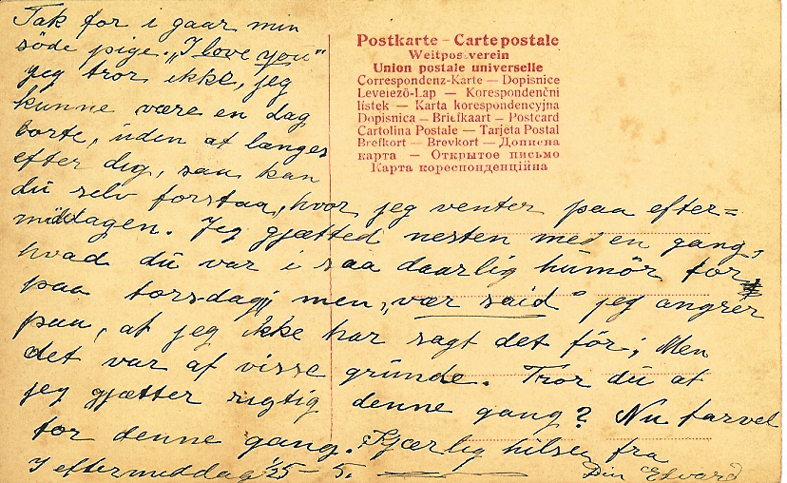 Tak for i gaar min
söde pige. „I love you"
jeg tror ikke, jeg
kunne være en dag
borte, uden at længes
efter dig, saa kan
du selv forstaa, hvor jeg venter paa efter=
middagen. Jeg gjætted nesten med en gang,
hvad du var i saa daarlig humör for
paa torsdag, men, „vær said" jeg angrer
paa, at jeg ikke har sagt det för; Men
det var af visse grunde. Tror du at
jeg gjætter rigtig denne gang? Nu farvel
for denne gang. Kjærlig hilsen fra
I eftermiddag 25-5. Din Edvard
Postkarte – Carte postale
Weltpostverein
Union postale universelle
Correspondenz-Karte — Dopisnice
Levelező-Lap — Korespondenčni
listek — Karta korespondencyjna
Dopisnica — Briefkaart — Postcard
Cartolina Postale — Tarjeta Postal
Brefkort — Brevkort — Дописна
карта — Открытое письмо
Карта кореспонденційна